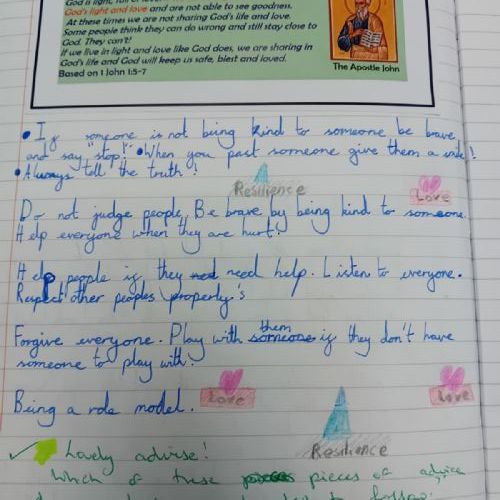 God's light and love and are not able to see goodness.
At these times we are not sharing God's life and love.
Some people think they can do wrong and still stay close to
God. They can't!
If we live in light and love like God does, we are sharing in
God's life and God will keep us safe, blest and loved.
Based on 1 John 1:5-7
The Apostle John
• If someone is not being kind to someone be brave
and say "stop!" • When you past someone give them a smile!
• Always tell the truth!
Resilience
Love
Do not judge people. Be brave by being kind to someone.
Help everyone when they are hurt!
Help people if they need help. Listen to everyone.
Respect other peoples property's
Forgive everyone. Play with them if they don't have
someone to play with!
Being a role model.
Love
Love
Resilience
Lovely advise!
Which of these pieces of advice